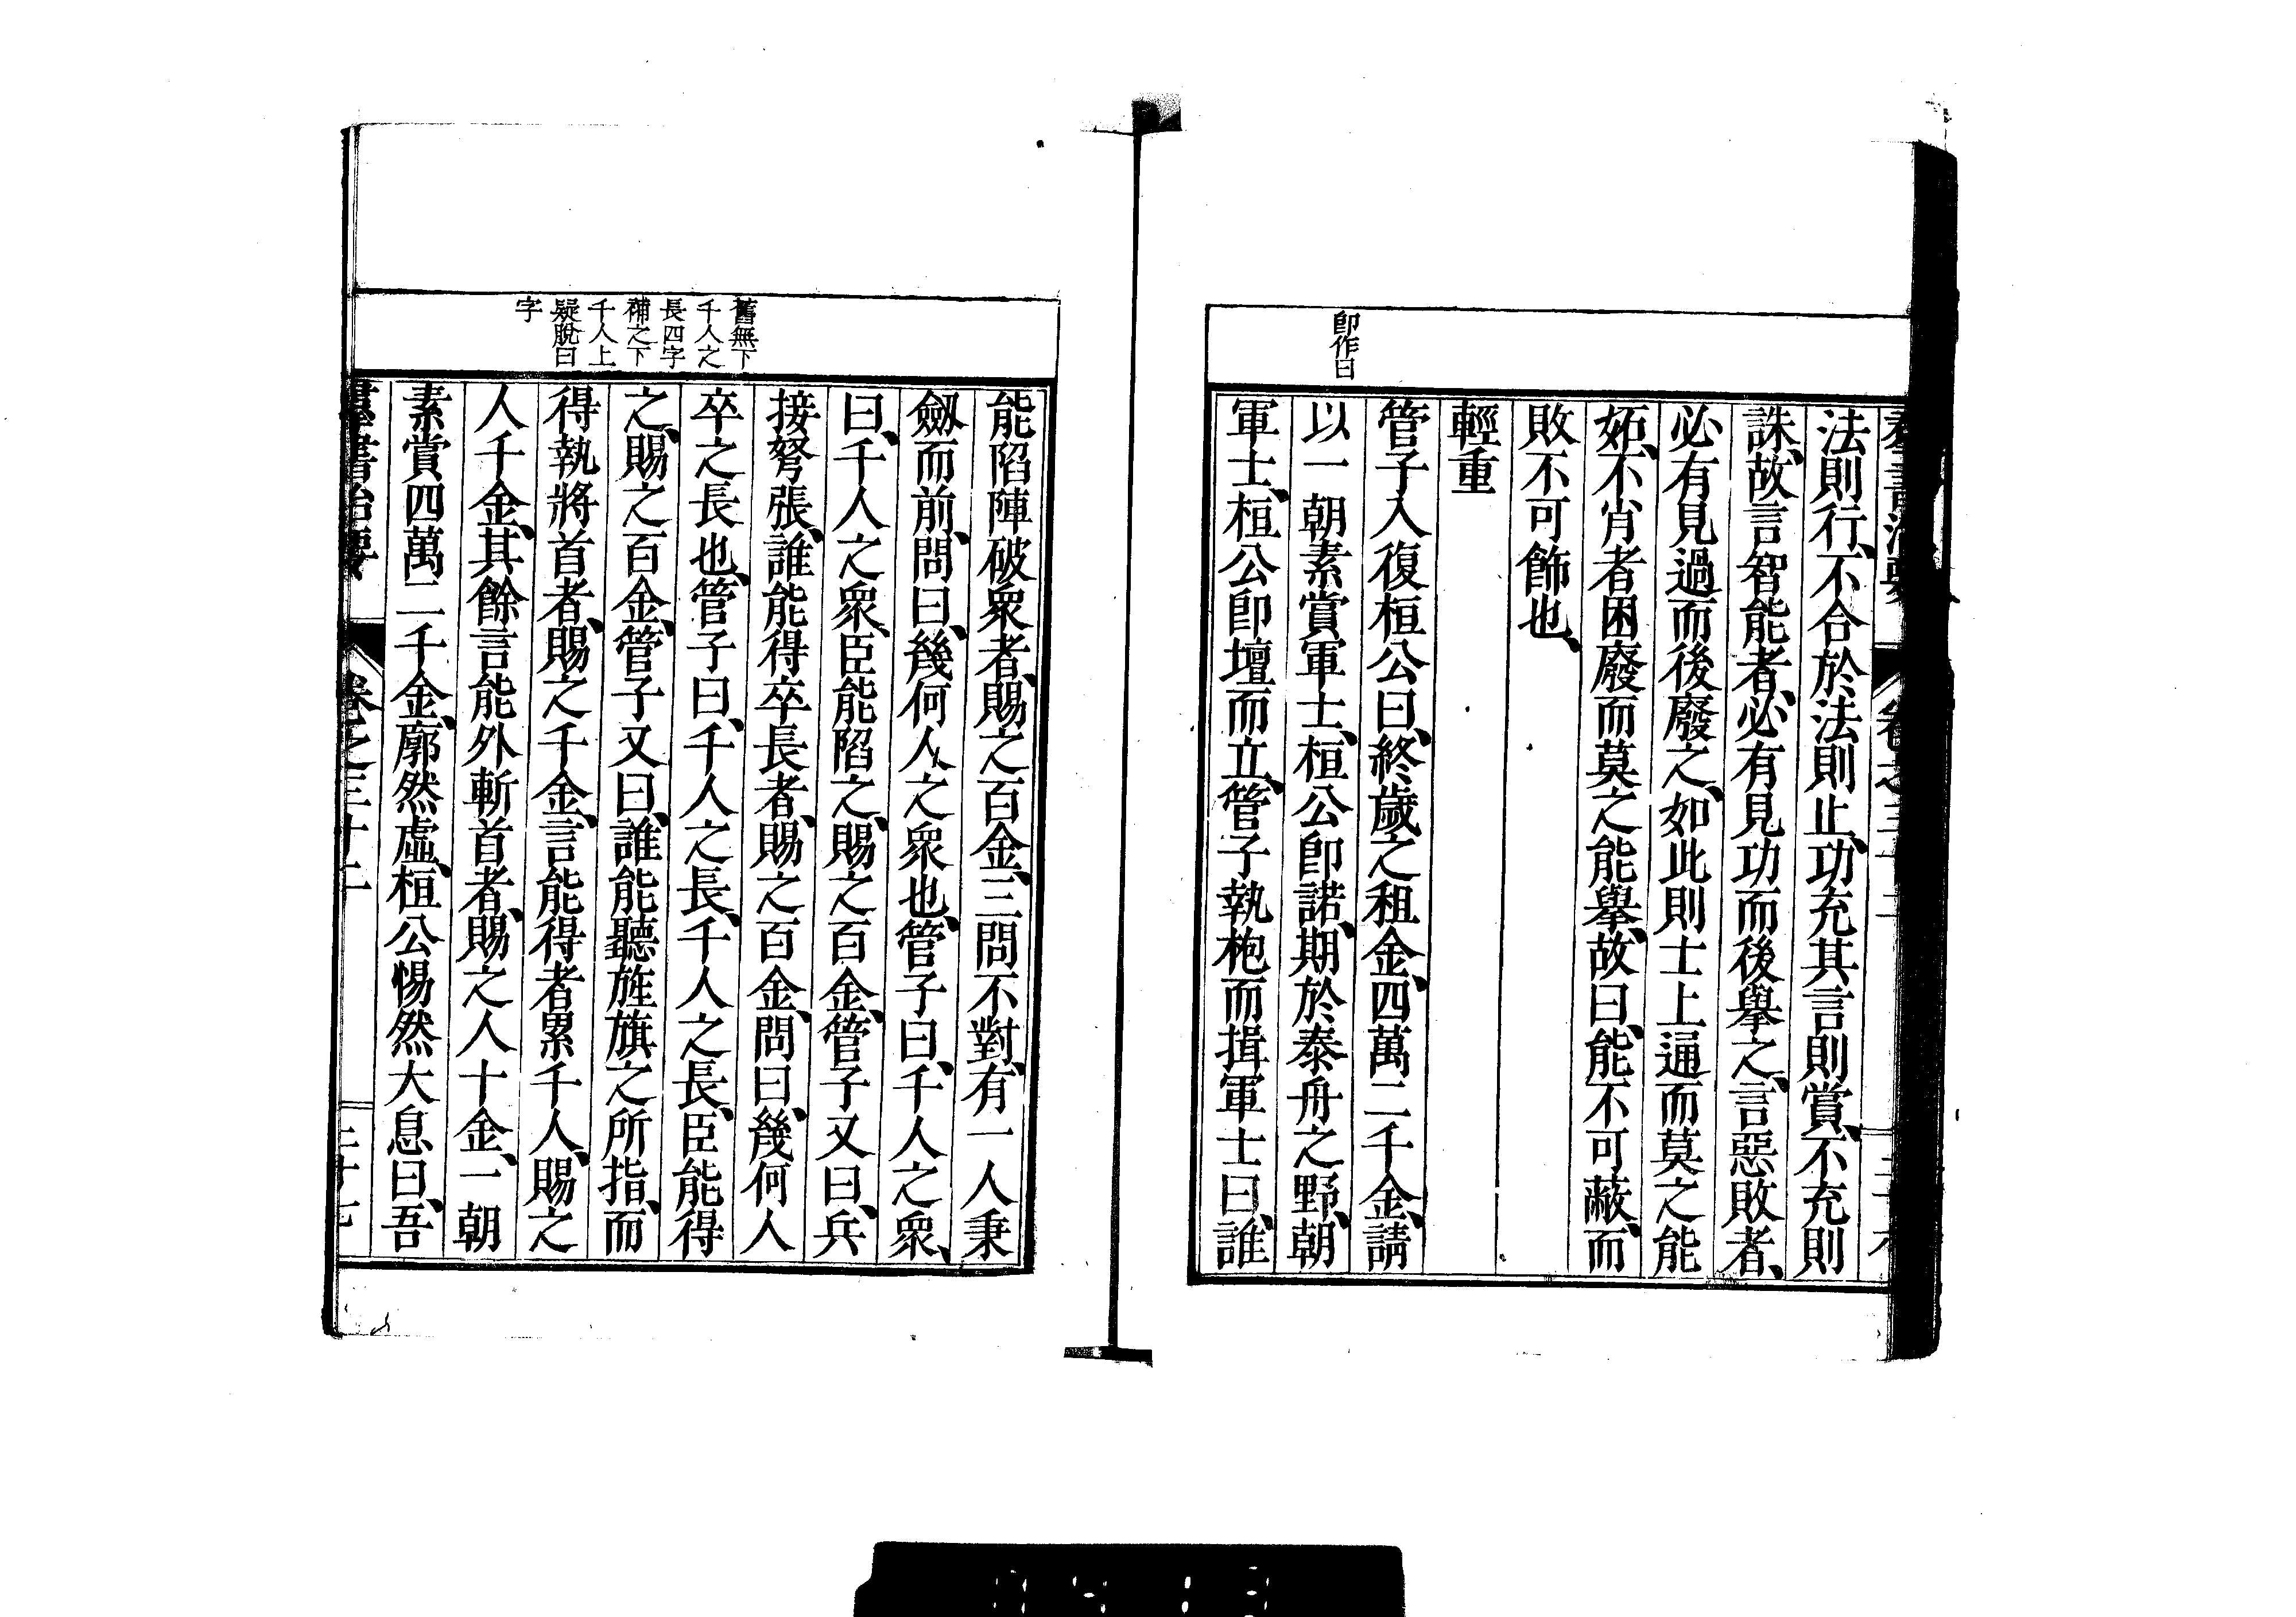 羣書治要 卷之三十二
法則行、不合於法則止、功充其言則賞、不充則
誅、故言智能者、必有見功而後擧之、言惡敗者、
必有見過而後廢之、如此則士上通而莫之能
妬、不肖者困廢而莫之能擧、故曰、能不可蔽、而
敗不可飾也、
輕重
管子入復桓公曰、終歲之租金、四萬二千金、請
以一朝素賞軍士、桓公卽諾、期於泰舟之野、朝
軍士、桓公卽壇而立、管子執枹而揖軍士曰、誰
卽作曰
能陷陣破衆者、賜之百金、三問不對、有一人秉
劒而前、問曰、幾何人之衆也、管子曰、千人之衆、
曰、千人之衆、臣能陷之、賜之百金、管子又曰、兵
接弩張、誰能得卒長者、賜之百金、問曰、幾何人
卒之長也、管子曰、千人之長、千人之長、臣能得
之、賜之百金、管子又曰、誰能聽旌旗之所指、而
得執將首者、賜之千金、言能得者累千人、賜之
人千金、其餘言能外斬首者、賜之人十金、一朝
素賞四萬二千金、廓然虛、桓公惕然大息曰、吾
舊無下
千人之
長四字
補之下
千人上
疑脫曰
字
羣書治要 卷之三十二 三十七